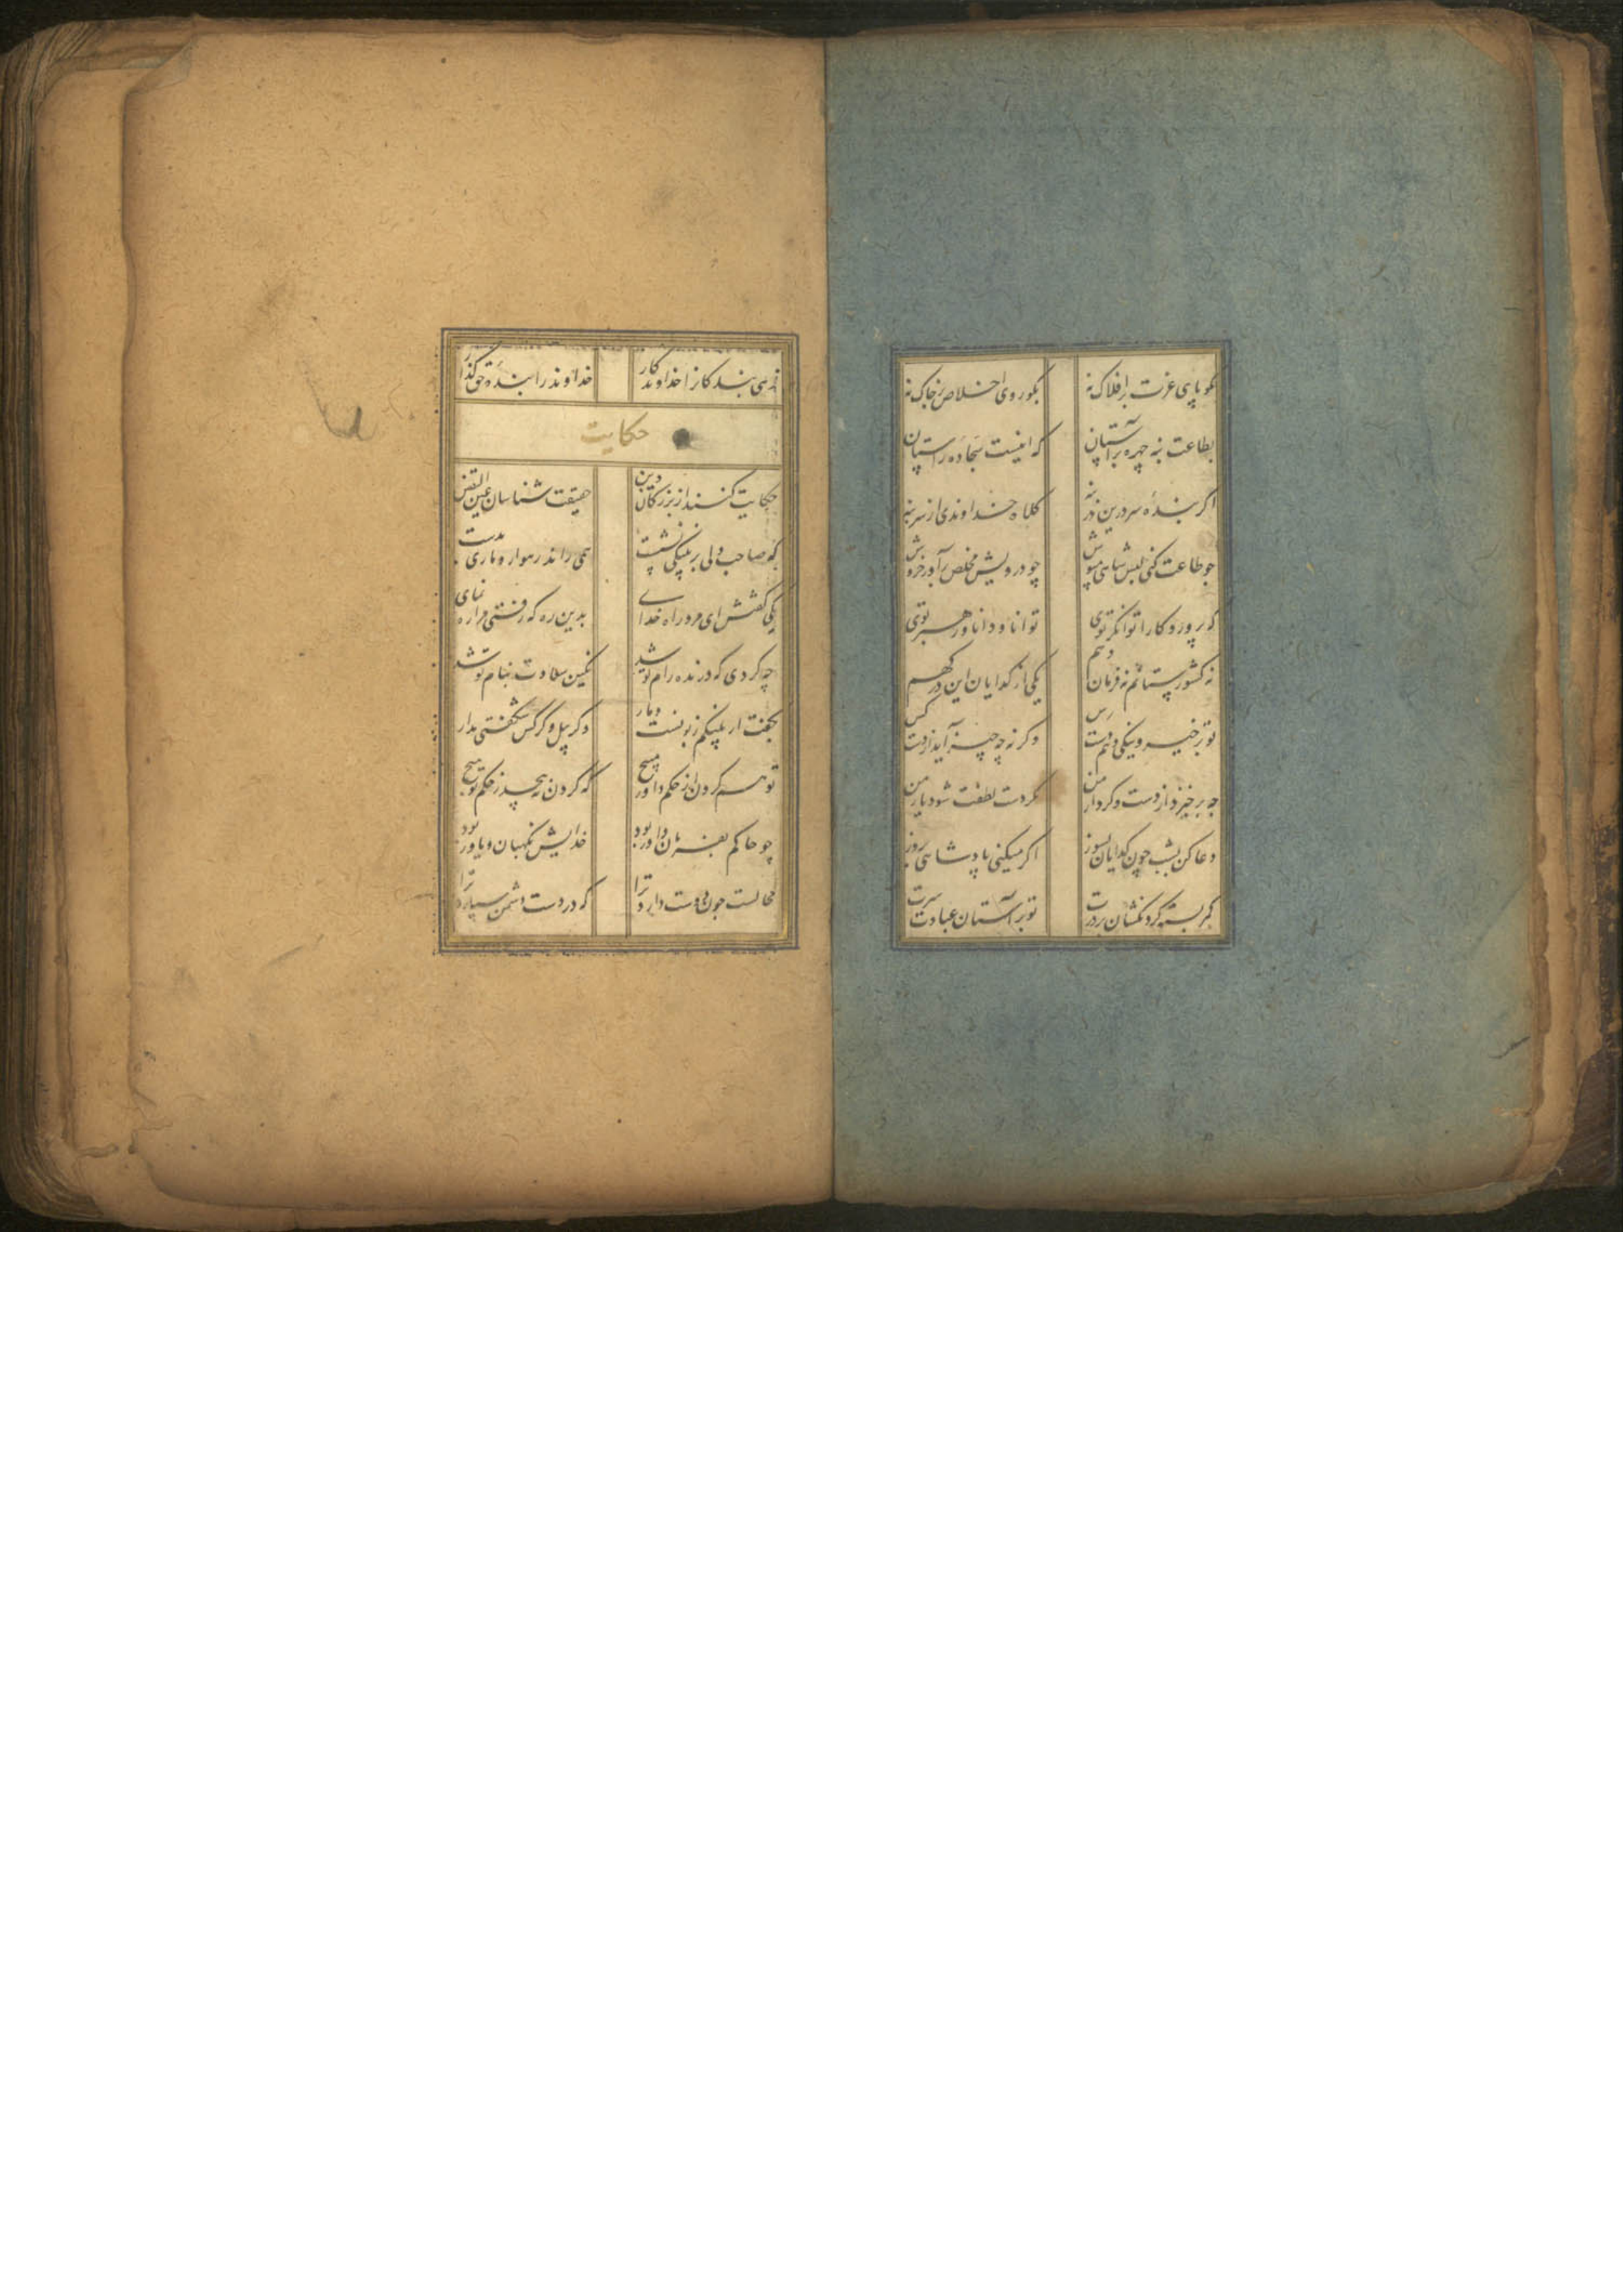 مگو پای عزت بر افلاک نه بگو روی اخلاص بر خاک نه
بطاعت بنه چهره بر آستان که اینست سجاده راستان
اگر بنده سر درین در بنه کلاه خداوندی از سر بنه
چو طاعت کنی لبس شاهی مپوش چو درویش مخلص برآور خروش
که پروردکارا توانکر توی توانا و دانا و رهبر توی
نه کشور ستانم نه فرمان دهم یکی از کدایان این درکهم
تو بر خیر و نیکی دهم دست رس وکر نه چه چیز آید از دست کس
چه برخیزد از دست و کردار من مکر دست لطفت شود یار من
دعا کن بشب چون کدایان بسوز اکر میکنی پادشاهی بروز
کمر بسته کردنکشان بر درت تو بر آستان عبادت سرت
زهی بندکانرا خداوند کار خداوند را بنده حق کذار
حکایت
حکایت کنند از بزرکان دین حقیقت شناسان عین الیقین
که صاحب دلی بر پلنکی نشست همی راند رهوار و ماری بدست
یکی کفتش ای مرد راه خدای بدین ره که رفتی مرا ره نمای
چه کردی که درنده رام تو شد نکین سعادت بنام تو شد
بکفت ار پلنکم زبونست و مار وکر پیل و کرکس شکفتی مدار
تو هم کردن از حکم داور مپیچ که کردن نپیچد ز حکم تو هیچ
چو حاکم بفرمان داور بود خدایش نکهبان و یاور بود
محالست چون دوست دارد ترا که در دست دشمن سپارد ترا